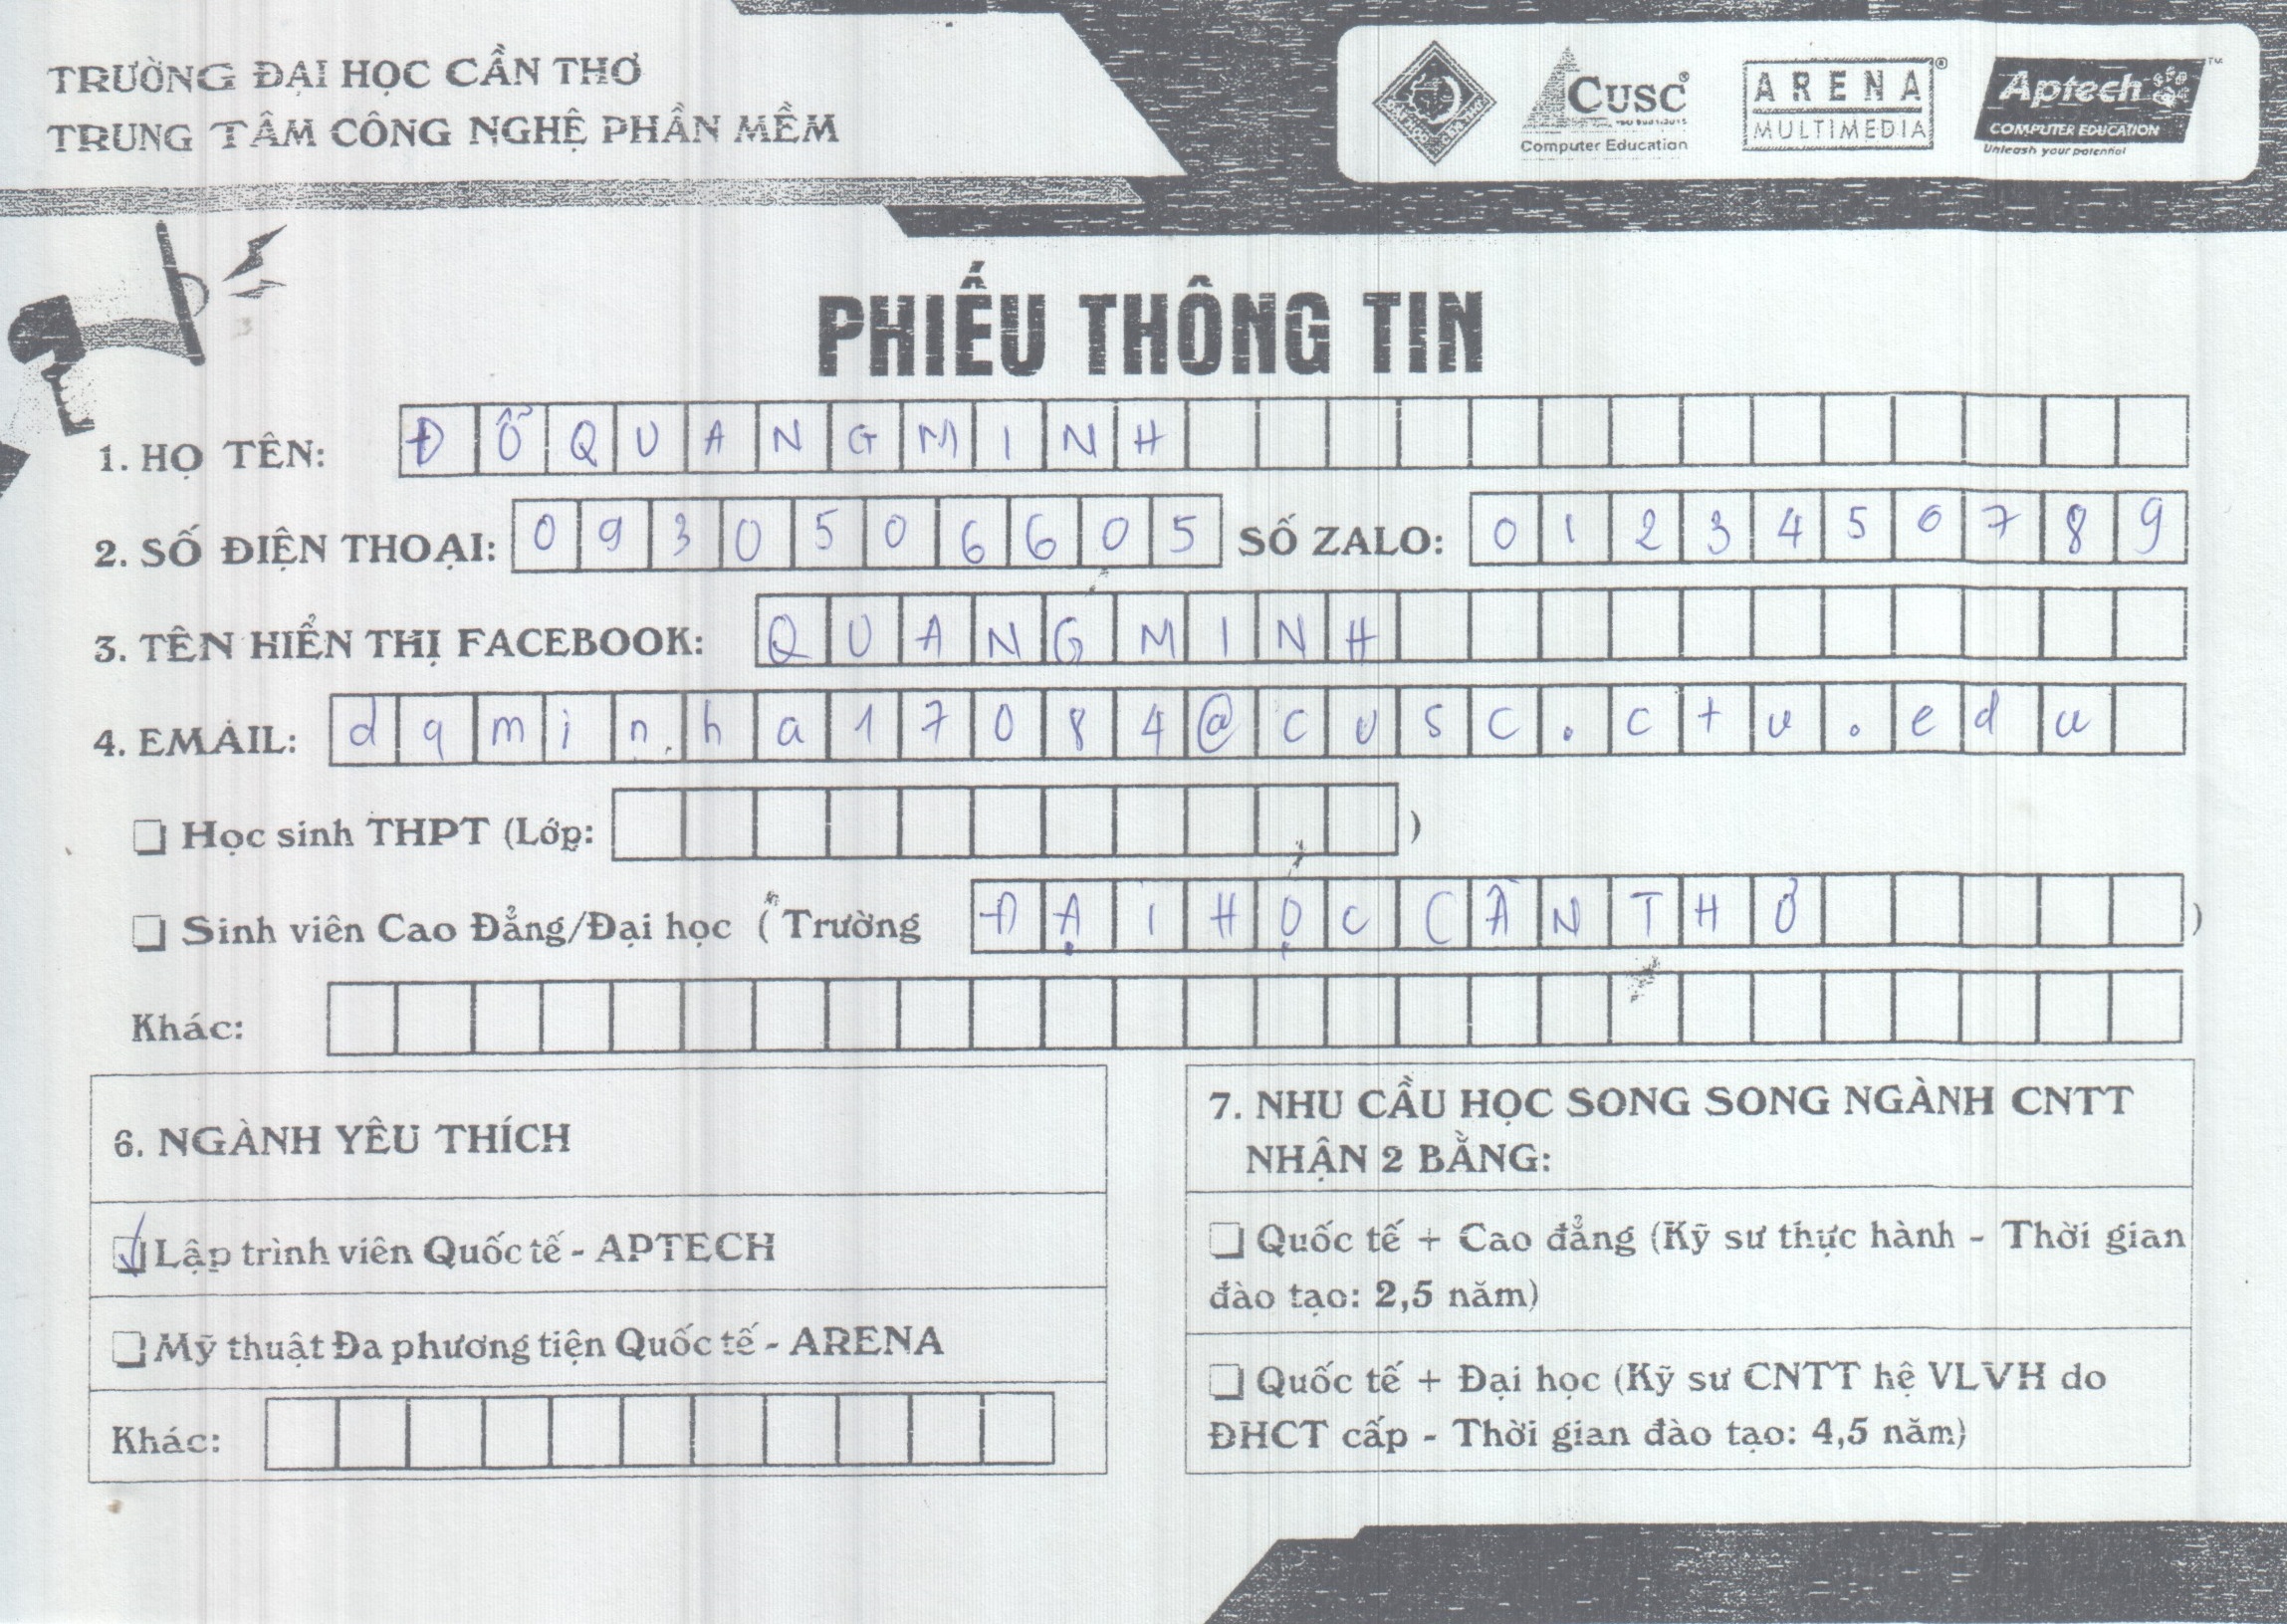 TRƯỜNG ĐẠI HỌC CẦN THƠ
TRUNG TÂM CÔNG NGHỆ PHẦN MỀM
CUSC®
Computer Education
ARENA®
MULTIMEDIA
Aptech™
COMPUTER EDUCATION
Unleash your potential
PHIẾU THÔNG TIN
1. HỌ TÊN: ĐỖ QUANG MINH
2. SỐ ĐIỆN THOẠI: 0930506605 SỐ ZALO: 0123456789
3. TÊN HIỂN THỊ FACEBOOK: QUANG MINH
4. EMAIL: dqminha17084@cusc.ctu.edu
Học sinh THPT (Lớp: )
Sinh viên Cao Đẳng/Đại học (Trường ĐẠI HỌC CẦN THƠ )
Khác:
6. NGÀNH YÊU THÍCH
Lập trình viên Quốc tế - APTECH
Mỹ thuật Đa phương tiện Quốc tế - ARENA
Khác:
7. NHU CẦU HỌC SONG SONG NGÀNH CNTT
NHẬN 2 BẰNG:
Quốc tế + Cao đẳng (Kỹ sư thực hành - Thời gian
đào tạo: 2,5 năm)
Quốc tế + Đại học (Kỹ sư CNTT hệ VLVH do
ĐHCT cấp - Thời gian đào tạo: 4,5 năm)